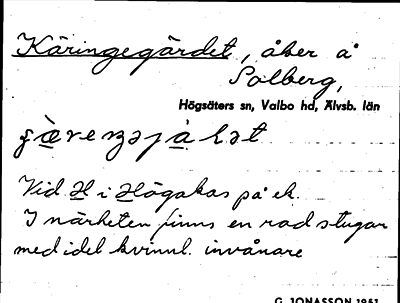 Käringegärdet, åker å
Solberg,
Högsäters sn, Valbo hd, Älvsb. län
Vid H i Högakas på ek.
I närheten finns en rad stugor
med idel kvinnl. invånare
G. JONASSON 1951